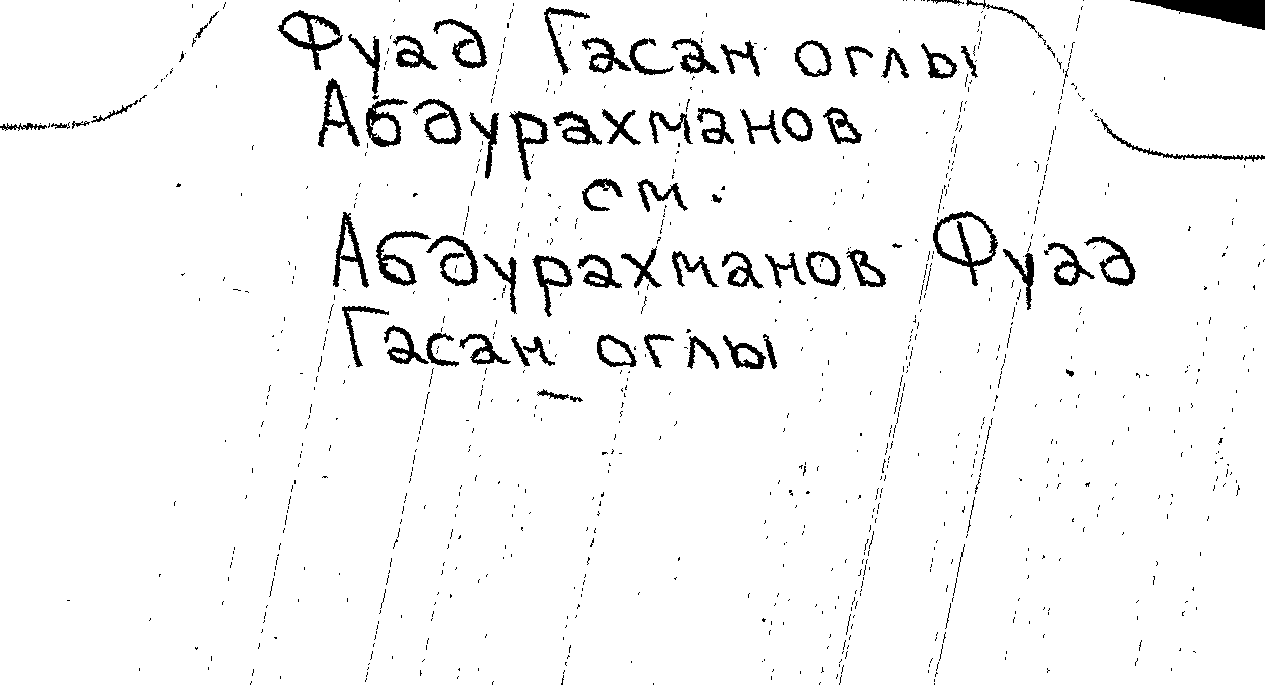 Фуад Гасан оглы
Абдурахманов
см.
Абдурахманов Фуад
Гасан оглы